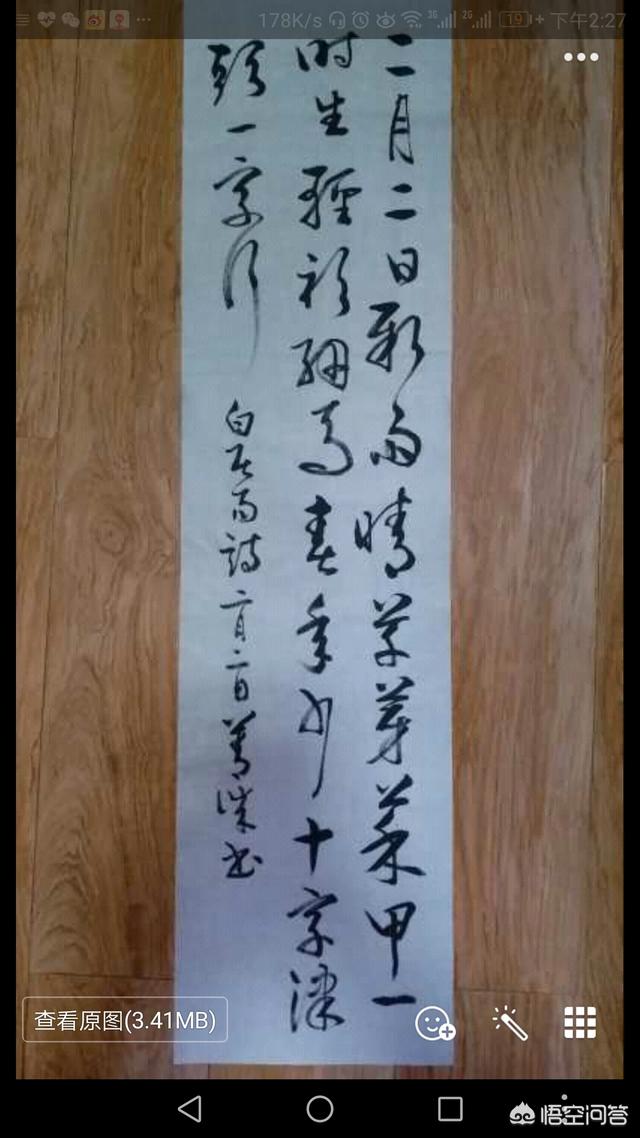 178K/s 3G 2G 19 下午2:27
二月二日新雨晴草芽菜甲一
时生輕衫細馬春年少十字津
頭一字行
白居易詩二月二日書
查看原图(3.41MB)
悟空问答